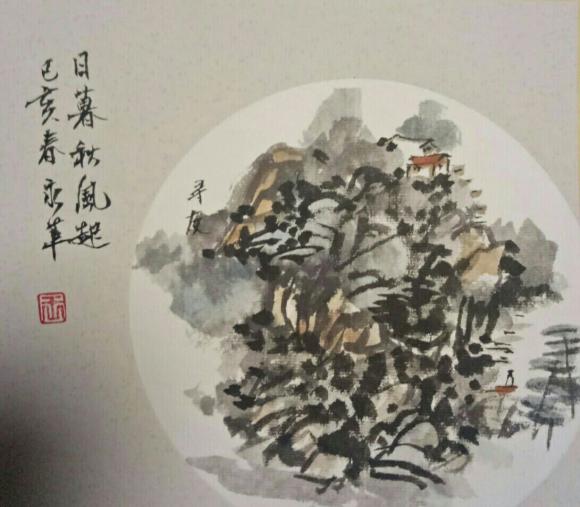 日暮秋风起
己亥春永革
寻友